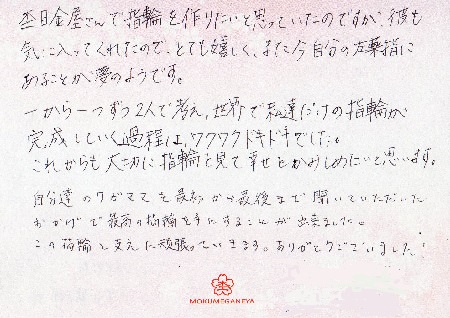 杢目金屋さんで指輪を作りたいと思っていたのですが、彼も
気に入ってくれたので、とても嬉しく、まだ今自分の左薬指に
あることが夢のようです。
一から一つずつ2人で考え、世界で私達だけの指輪が
完成していく過程は、ワクワクドキドキでした。
これからも大切に指輪を見て幸せをかみしめたいと思います。
自分達のワガママを最初から最後まで聞いていただいた
おかげで最高の指輪を手にすることが出来ました。
この指輪を支えに頑張っていきます。ありがとうございました!
MOKUMEGANEYA